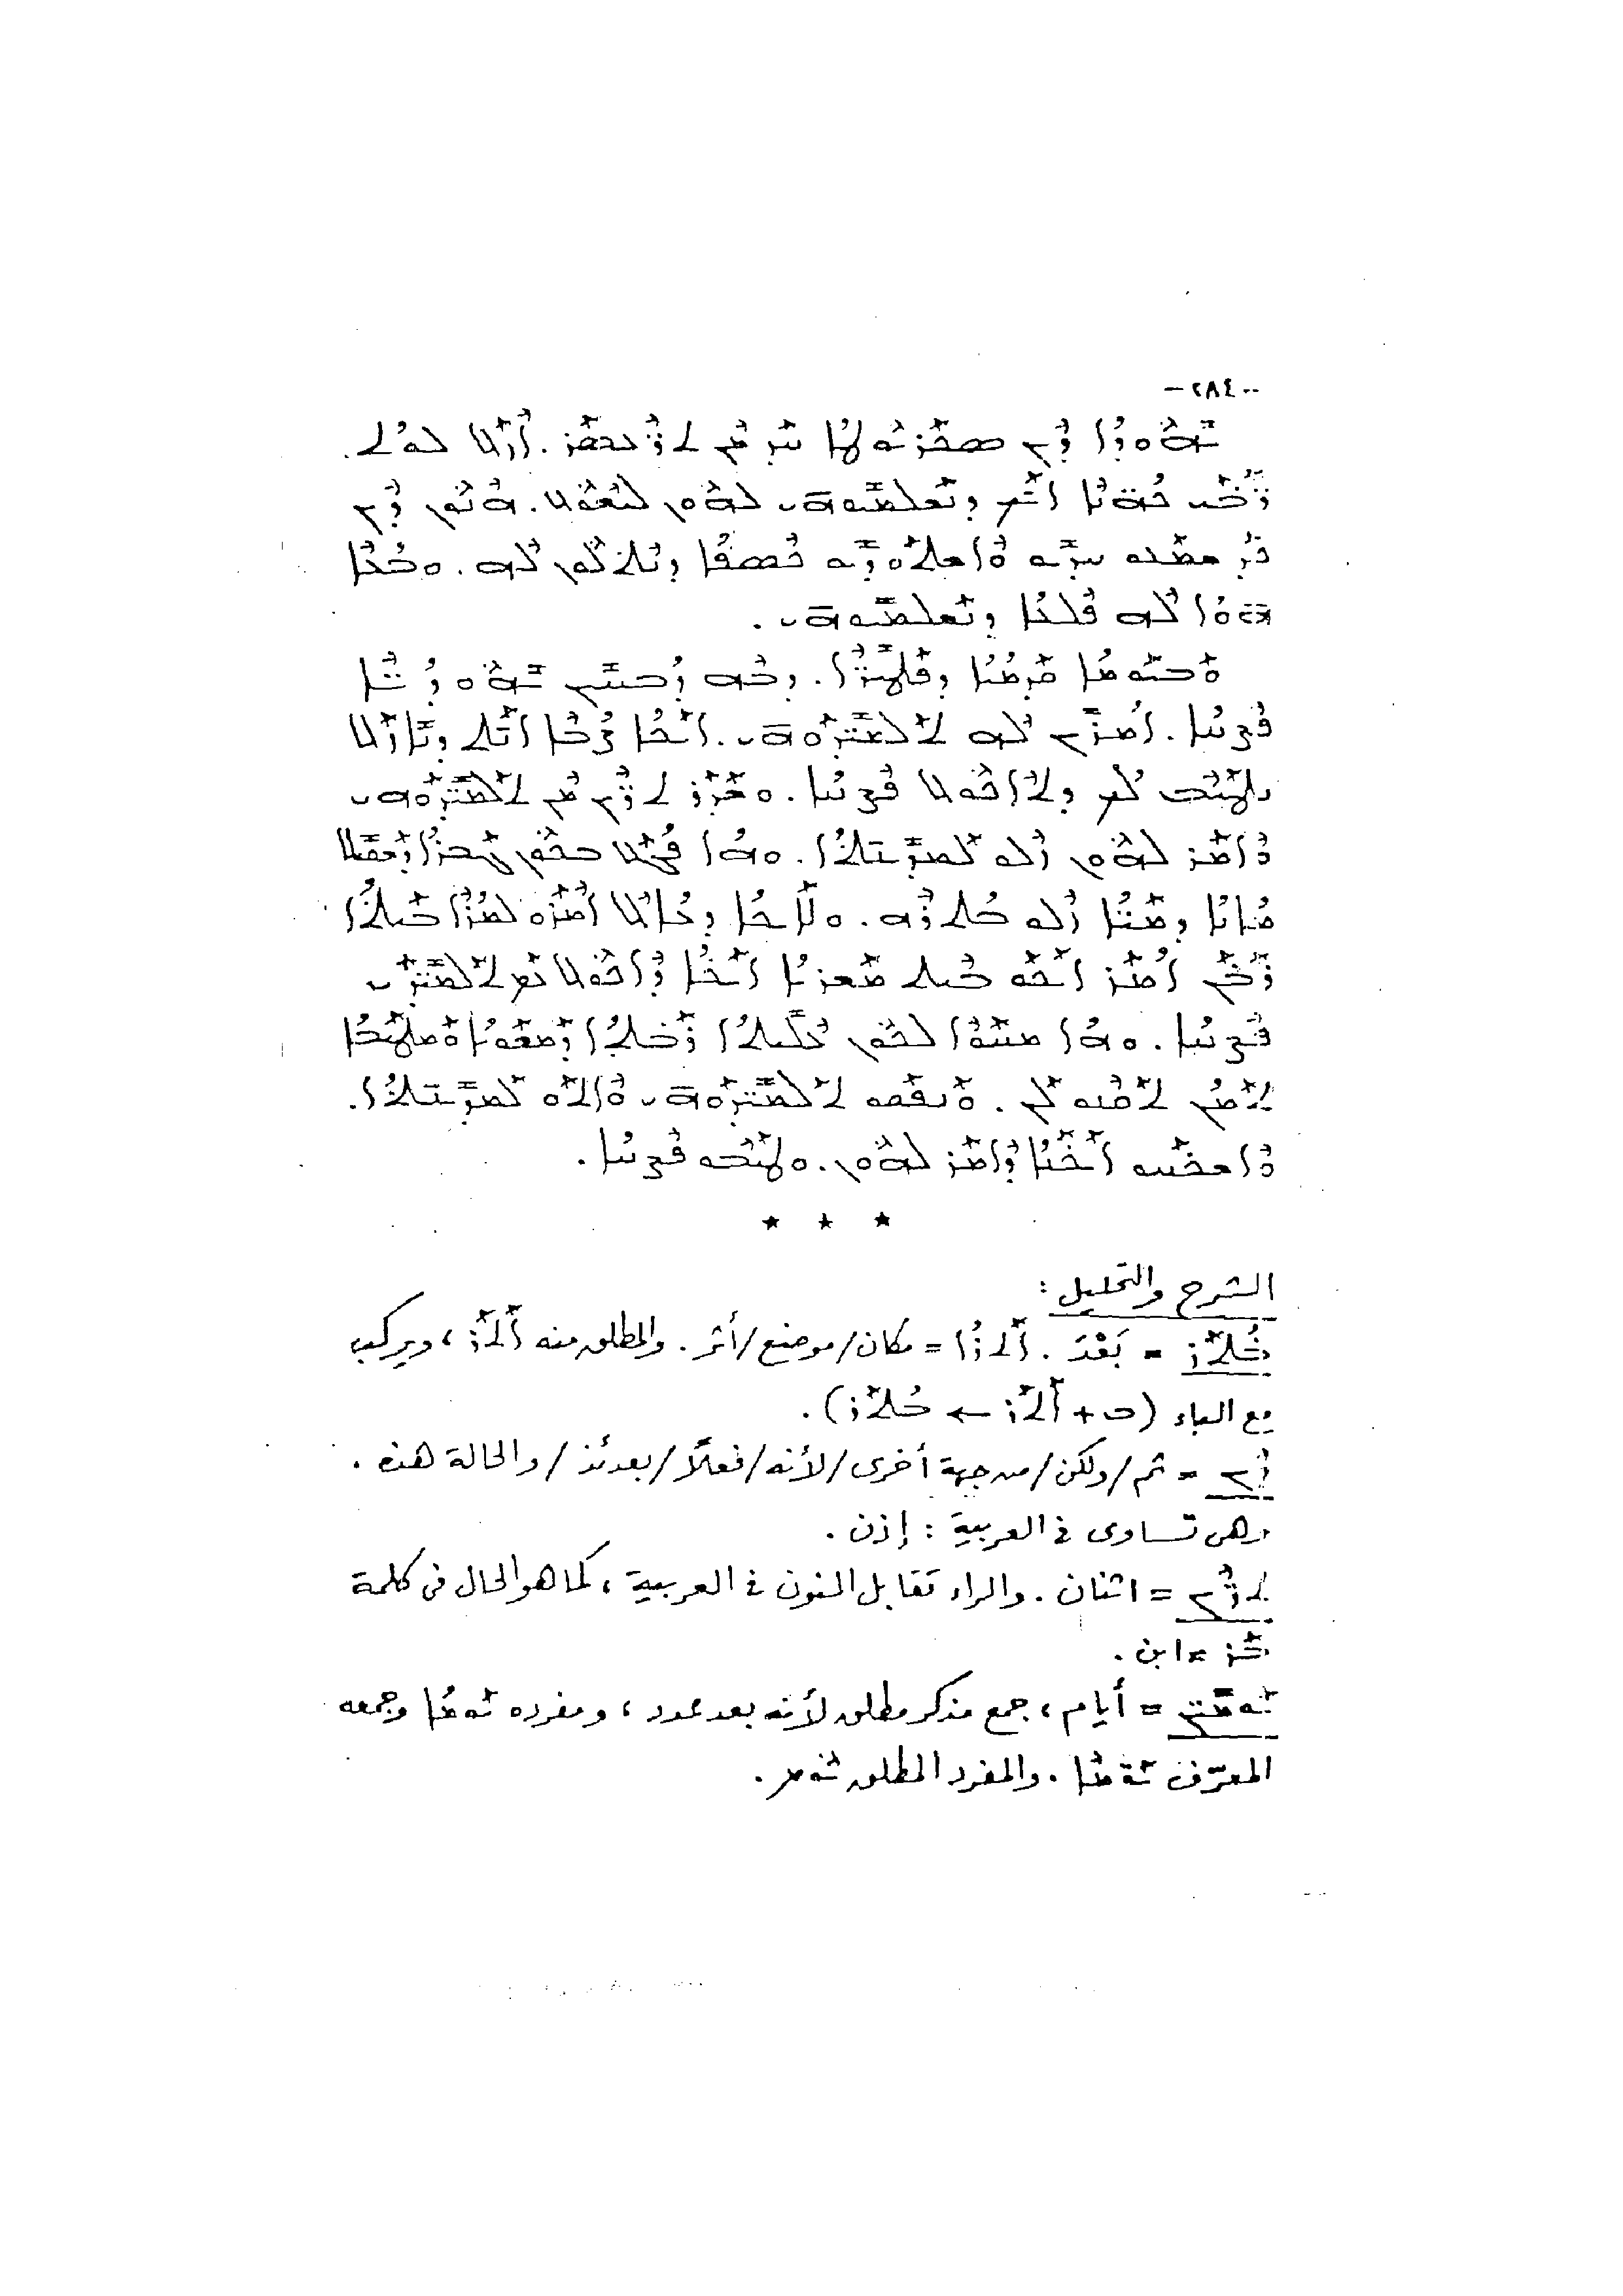 -٢٨٤-
ܝܗܘܕܐ ܕܝܢ ܣܟܪܝܘܛܐ ܚܕ ܡܢ ܬܪܥܣܪ. ܐܙܠ ܠܘܬ
ܪܒܝ ܟܗܢܐ ܐܝܟ ܕܢܫܠܡܝܘܗܝ ܠܗܘܢ ܠܝܫܘܥ. ܗܢܘܢ ܕܝܢ
ܟܕ ܫܡܥܘ ܚܕܝܘ ܘܐܫܬܘܕܝܘ ܟܣܦܐ ܕܢܬܠܘܢ ܠܗ. ܘܒܥܐ
ܗܘܐ ܠܗ ܦܠܥܐ ܕܢܫܠܡܝܘܗܝ.
ܘܒܝܘܡܐ ܩܕܡܝܐ ܕܦܛܝܪܐ. ܕܒܗ ܕܒܚܝܢ ܝܗܘܕܝܐ
ܦܨܚܐ. ܐܡܪܝܢ ܠܗ ܬܠܡܝܕܘܗܝ. ܐܝܟܐ ܨܒܐ ܐܢܬ ܕܢܐܙܠ
ܢܛܝܒ ܠܟ ܕܬܐܟܘܠ ܦܨܚܐ. ܘܫܕܪ ܬܪܝܢ ܡܢ ܬܠܡܝܕܘܗܝ
ܘܐܡܪ ܠܗܘܢ ܙܠܘ ܠܡܕܝܢܬܐ. ܘܗܐ ܦܓܥ ܒܟܘܢ ܓܒܪܐ ܕܫܩܝܠ
ܡܐܢܐ ܕܡܝܐ ܙܠܘ ܒܬܪܗ. ܘܠܐܝܟܐ ܕܥܐܠ ܐܡܪܘ ܠܡܪܐ ܒܝܬܐ
ܪܒܢ ܐܡܪ ܐܝܟܘ ܒܝܬ ܡܫܪܝܐ ܐܝܟܐ ܕܐܟܘܠ ܥܡ ܬܠܡܝܕܝ
ܦܨܚܐ. ܘܗܐ ܡܚܘܐ ܠܟܘܢ ܥܠܝܬܐ ܪܒܬܐ ܕܡܫܘܝܐ ܘܡܛܝܒܐ
ܬܡܢ ܬܩܢܘ ܠܢ. ܘܢܦܩܘ ܬܠܡܝܕܘܗܝ ܘܐܬܘ ܠܡܕܝܢܬܐ.
ܘܐܫܟܚܘ ܐܝܟܢܐ ܕܐܡܪ ܠܗܘܢ. ܘܛܝܒܘ ܦܨܚܐ.
* * *
الشرح والتحليل :
ܒܬܪ = بَعْدَ . ܐܬܪܐ = مكان/موضع/أثر . والمطلق منه ܐܬܪ ، ويركب
مع الباء (ܒ + ܐܬܪ ← ܒܬܪ) .
ܕܝܢ = ثم/ولكن/من جهة أخرى/لأنه/فعلًا/بعدئذ/والحالة هذه .
وهي تساوى فى العربية : إذن .
ܬܪܝܢ = اثنان . والراء تقابل النون فى العربية ، كما هو الحال فى كلمة
ܒܪ = ابن .
ܝܘܡܝܢ = أيام ، جمع مذكر مطلق لأنه بعد عدد ، ومفرده ܝܘܡܐ وجمعه
المعرّف ܝܘܡܐ . والمفرد المطلق ܝܘܡ .